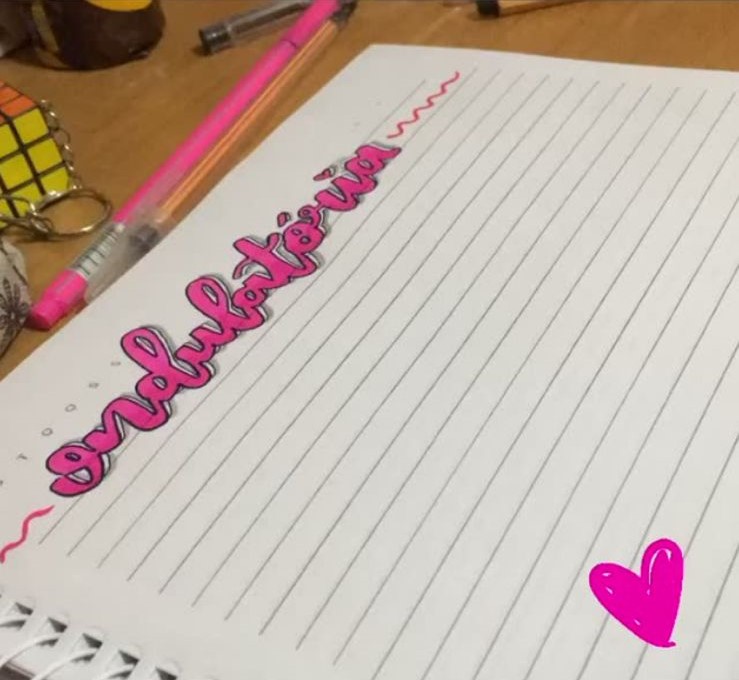 ondulatória